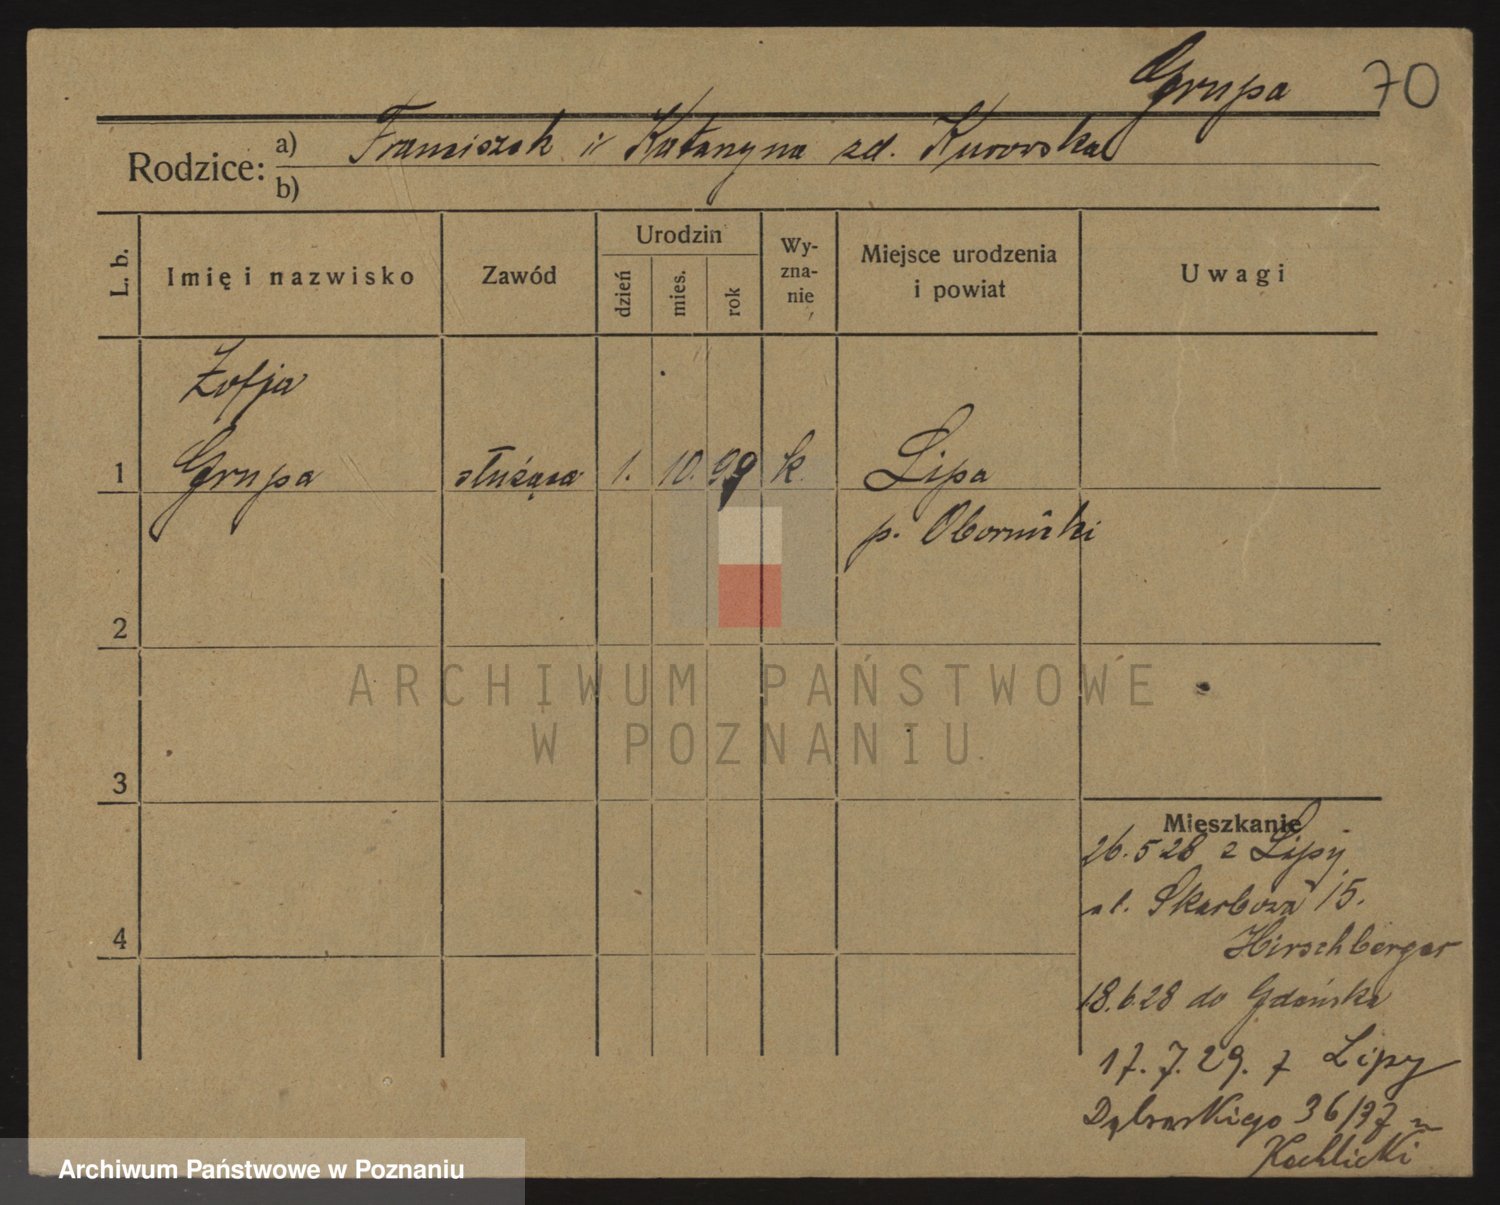 Grupa 70
Rodzice: a) Franciszek i Katarzyna zd. Kurowska
b)
L. b.
Imię i nazwisko
Zawód
Urodzin
dzień
mies.
rok
Wy-
zna-
nie
Miejsce urodzenia
i powiat
Uwagi
Zofja
1 Grupa służąca 1. 10. 99 k. Lipa
p. Obornicki
2
3
4
ARCHIWUM PAŃSTWOWE
W POZNANIU
Mieszkanie
26.5 28 z Lipy
ul. Skarbowa 15.
Hirschberger
18.6.28 do Gdańska
17.7.29. z Lipy
Dąbrowskiego 36/37
Archiwum Państwowe w Poznaniu